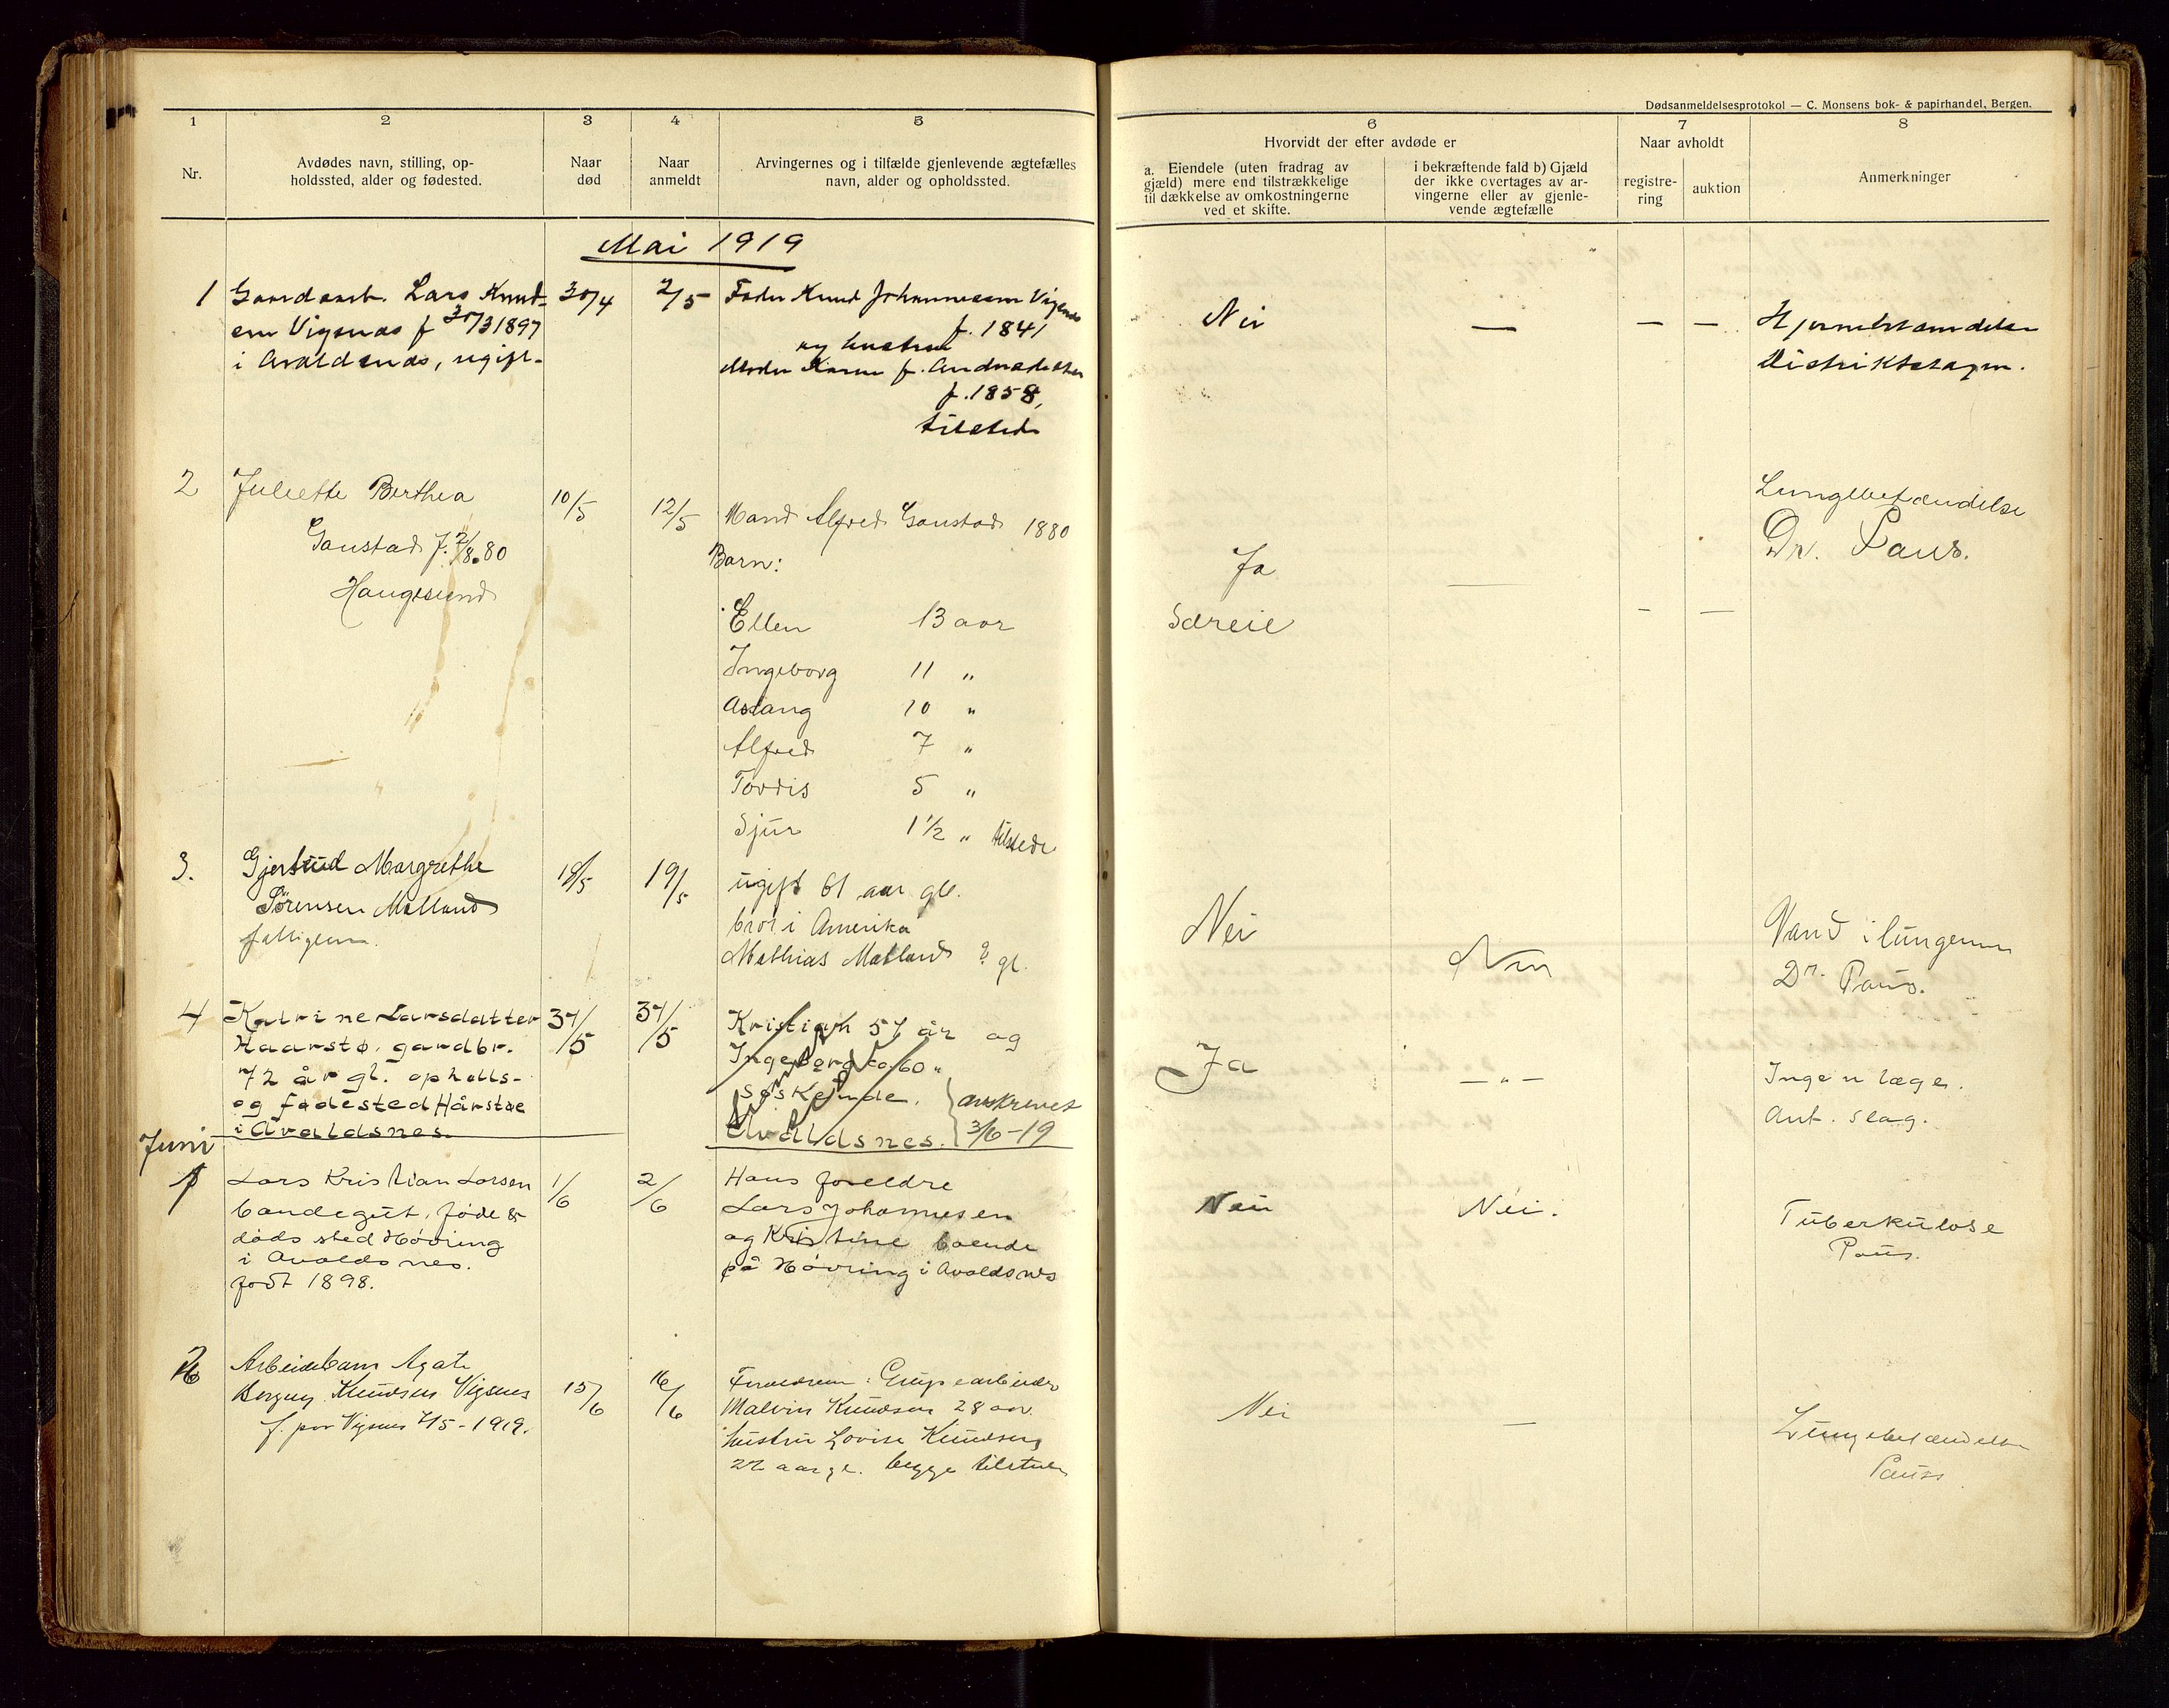 Dødsanmeldelsesprotokol — C. Monsens bok- & papirhandel, Bergen.
1 2 3 4 5 6 7 8
Nr.
Avdødes navn, stilling, op-
holdssted, alder og fødested.
Naar
død
Naar
anmeldt
Arvingernes og i tilfælde gjenlevende ægtefælles
navn, alder og opholdssted.
Hvorvidt der efter avdøde er
a. Eiendele (uten fradrag av
gjæld) mere end tilstrækkelige
til dækkelse av omkostningerne
ved et skifte.
i bekræftende fald b) Gjæld
der ikke overtages av ar-
vingerne eller av gjenle-
vende ægtefælle
Naar avholdt
registre-
ring
auktion
Anmerkninger
Mai 1919
1
Gaardarb. Lars Knud-
sen Vigsnæs f 30/3 1897
i Avaldsnæs, ugift.
30/4
2/5
Fader Knud Johannessen Vigsnæs
f. 1841
og hustru
Moder Karen f. Andreasdatter
f. 1858,
tilstede
Nei
—
— —
Hjernebetændelse
Distriktslægen.
2
Juliette Berthea
Gaustad f. 2/8.80
Haugesund
10/5
12/5
Mand Alfred Gaustad 1880
Barn:
Ellen 13 aar
Ingeborg 11 "
Aslaug 10 "
Alfred 7 "
Tordis 5 "
Sjur 1 1/2 " tilstede
Ja
Særeie
—
- —
Lungebetændelse
Dr. Paus.
3.
Gjertrud Margrethe
Sørensen Matland
fattiglem.
18/5
19/5
ugift 61 aar gl.
bror i Amerika
Mathias Matland ? gl.
Nei
Nei
Vand i lungerne
Dr. Paus.
4
Katrine Larsdatter
Haarstø. gardbr.
72 år gl. opholls-
og fødested Hårstøe
i Avaldsnes.
31/5
31/5
Kristian 57 år og
Ingeborg 60 "
søskende.
Avaldsnes.
avskrevet
3/6-19
Ja
— " —
Ingen læge.
Ant. slag.
Juni
1
Lars Kristian Larsen
bondegut. føde &
døds sted Høvring
i Avaldsnes.
født 1898.
1/6
2/6
Hans foreldre
Lars Johannesen
og Kristine boende
på Høvring i Avaldsnes
Nei
Nei.
Tuberkulose
Paus.
2
Arbeiderbarn Agate
Knudsen Vigsnes
f. paa Vigsnes 7/5-1919.
15/6
16/6
Forældrene: Grubearbeider
Malvin Knudsen 28 aar.
hustru Lovise Knudsen
22 aar gl. begge tilstede
Nei
—
Lungebetændelse
Pauss